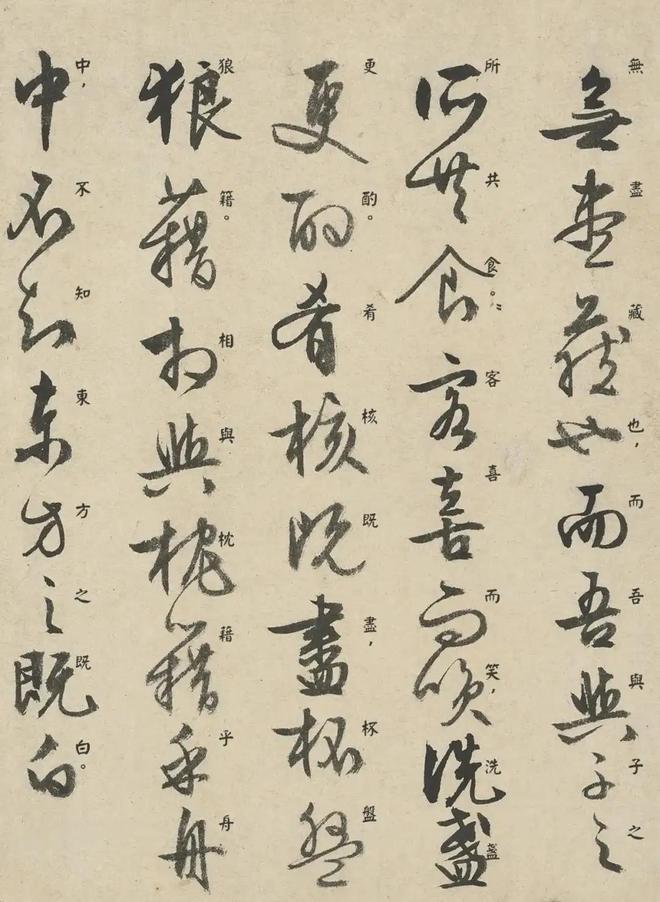 無盡藏也，而吾與子之
所共食。客喜而笑，洗盞
更酌。肴核既盡，杯盤
狼籍。相與枕藉乎舟
中，不知東方之既白。